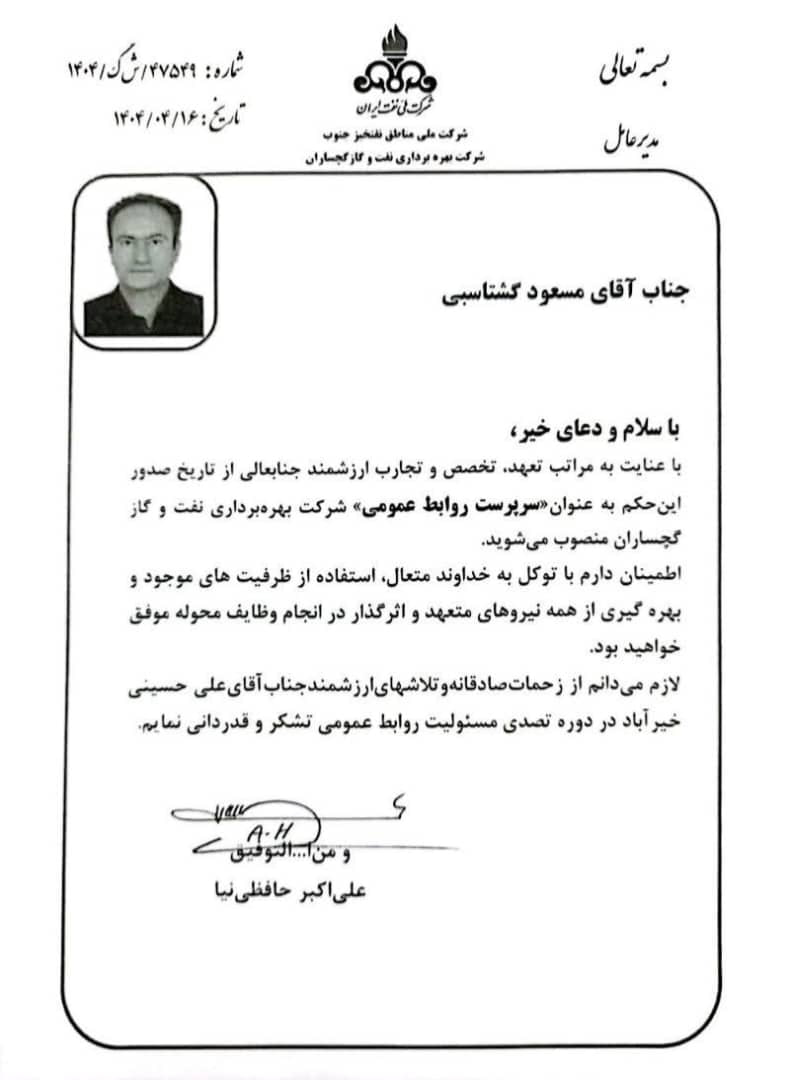 بسمه تعالی
مدیر عامل
شرکت ملی نفت ایران
شرکت ملی مناطق نفتخیز جنوب
شرکت بهره برداری نفت و گاز گچساران
شماره: ۴۷۵۴۹/ش گ/۱۴۰۴
تاریخ: ۱۴۰۴/۰۴/۱۶
جناب آقای مسعود گشتاسبی
با سلام و دعای خیر،
با عنایت به مراتب تعهد، تخصص و تجارب ارزشمند جنابعالی از تاریخ صدور
این‌حکم به عنوان«سرپرست روابط عمومی» شرکت بهره‌برداری نفت و گاز
گچساران منصوب می‌شوید.
اطمینان دارم با توکل به خداوند متعال، استفاده از ظرفیت های موجود و
بهره گیری از همه نیروهای متعهد و اثرگذار در انجام وظایف محوله موفق
خواهید بود.
لازم می‌دانم از زحمات صادقانه و تلاشهای ارزشمند جناب آقای علی حسینی
خیر آباد در دوره تصدی مسئولیت روابط عمومی تشکر و قدردانی نمایم.
A-H
و من ا...التوفیق
علی‌اکبر حافظی‌نیا